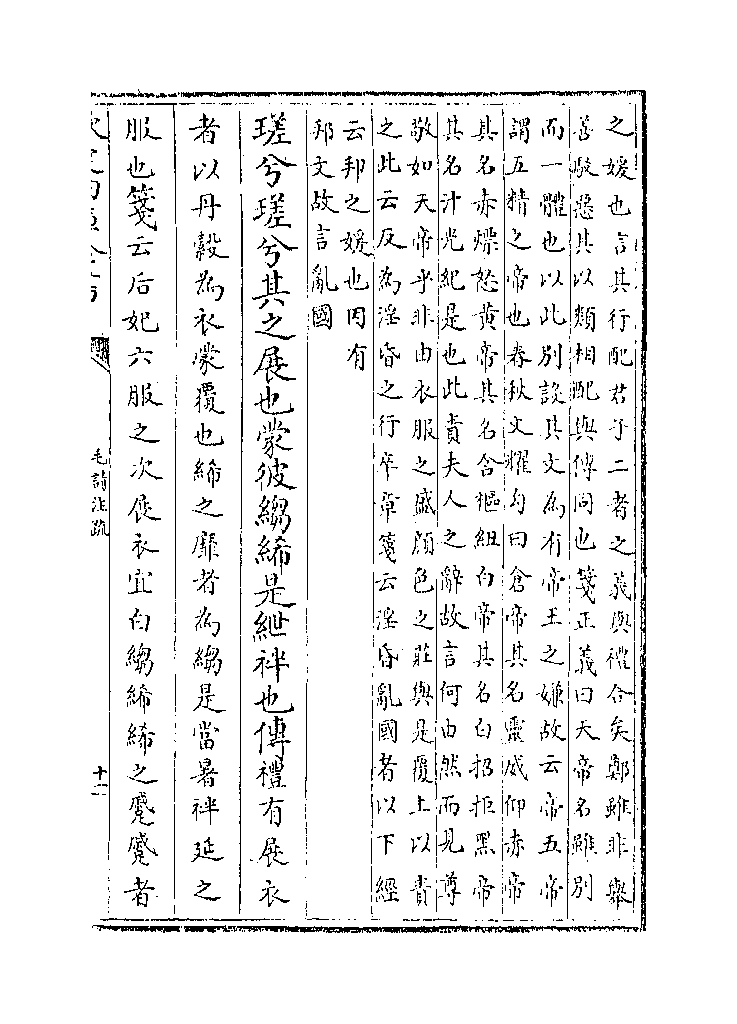 之媛也言其行配君子二者之義與禮合矣鄭雖非舉
善駮惡其以類相配與傳同也箋正義曰天帝名雖別
而一體也以此別設其文為有帝王之嫌故云帝五帝
謂五精之帝也春秋文耀勾曰倉帝其名靈威仰赤帝
其名赤熛怒黄帝其名含樞紐白帝其名白招拒黑帝
其名汁光紀是也此責夫人之辭故言何由然而見尊
敬如天帝乎非由衣服之盛顔色之莊與是覆上以責
之此云反為淫昏之行卒章箋云淫昏亂國者以下經
云邦之媛也因有
邦文故言亂國
瑳兮瑳兮其之展也蒙彼縐絺是紲袢也傳禮有展衣
者以丹縠為衣蒙覆也絺之靡者為縐是當暑袢延之
服也箋云后妃六服之次展衣宜白縐絺絺之蹙蹙者
毛詩注疏
十一